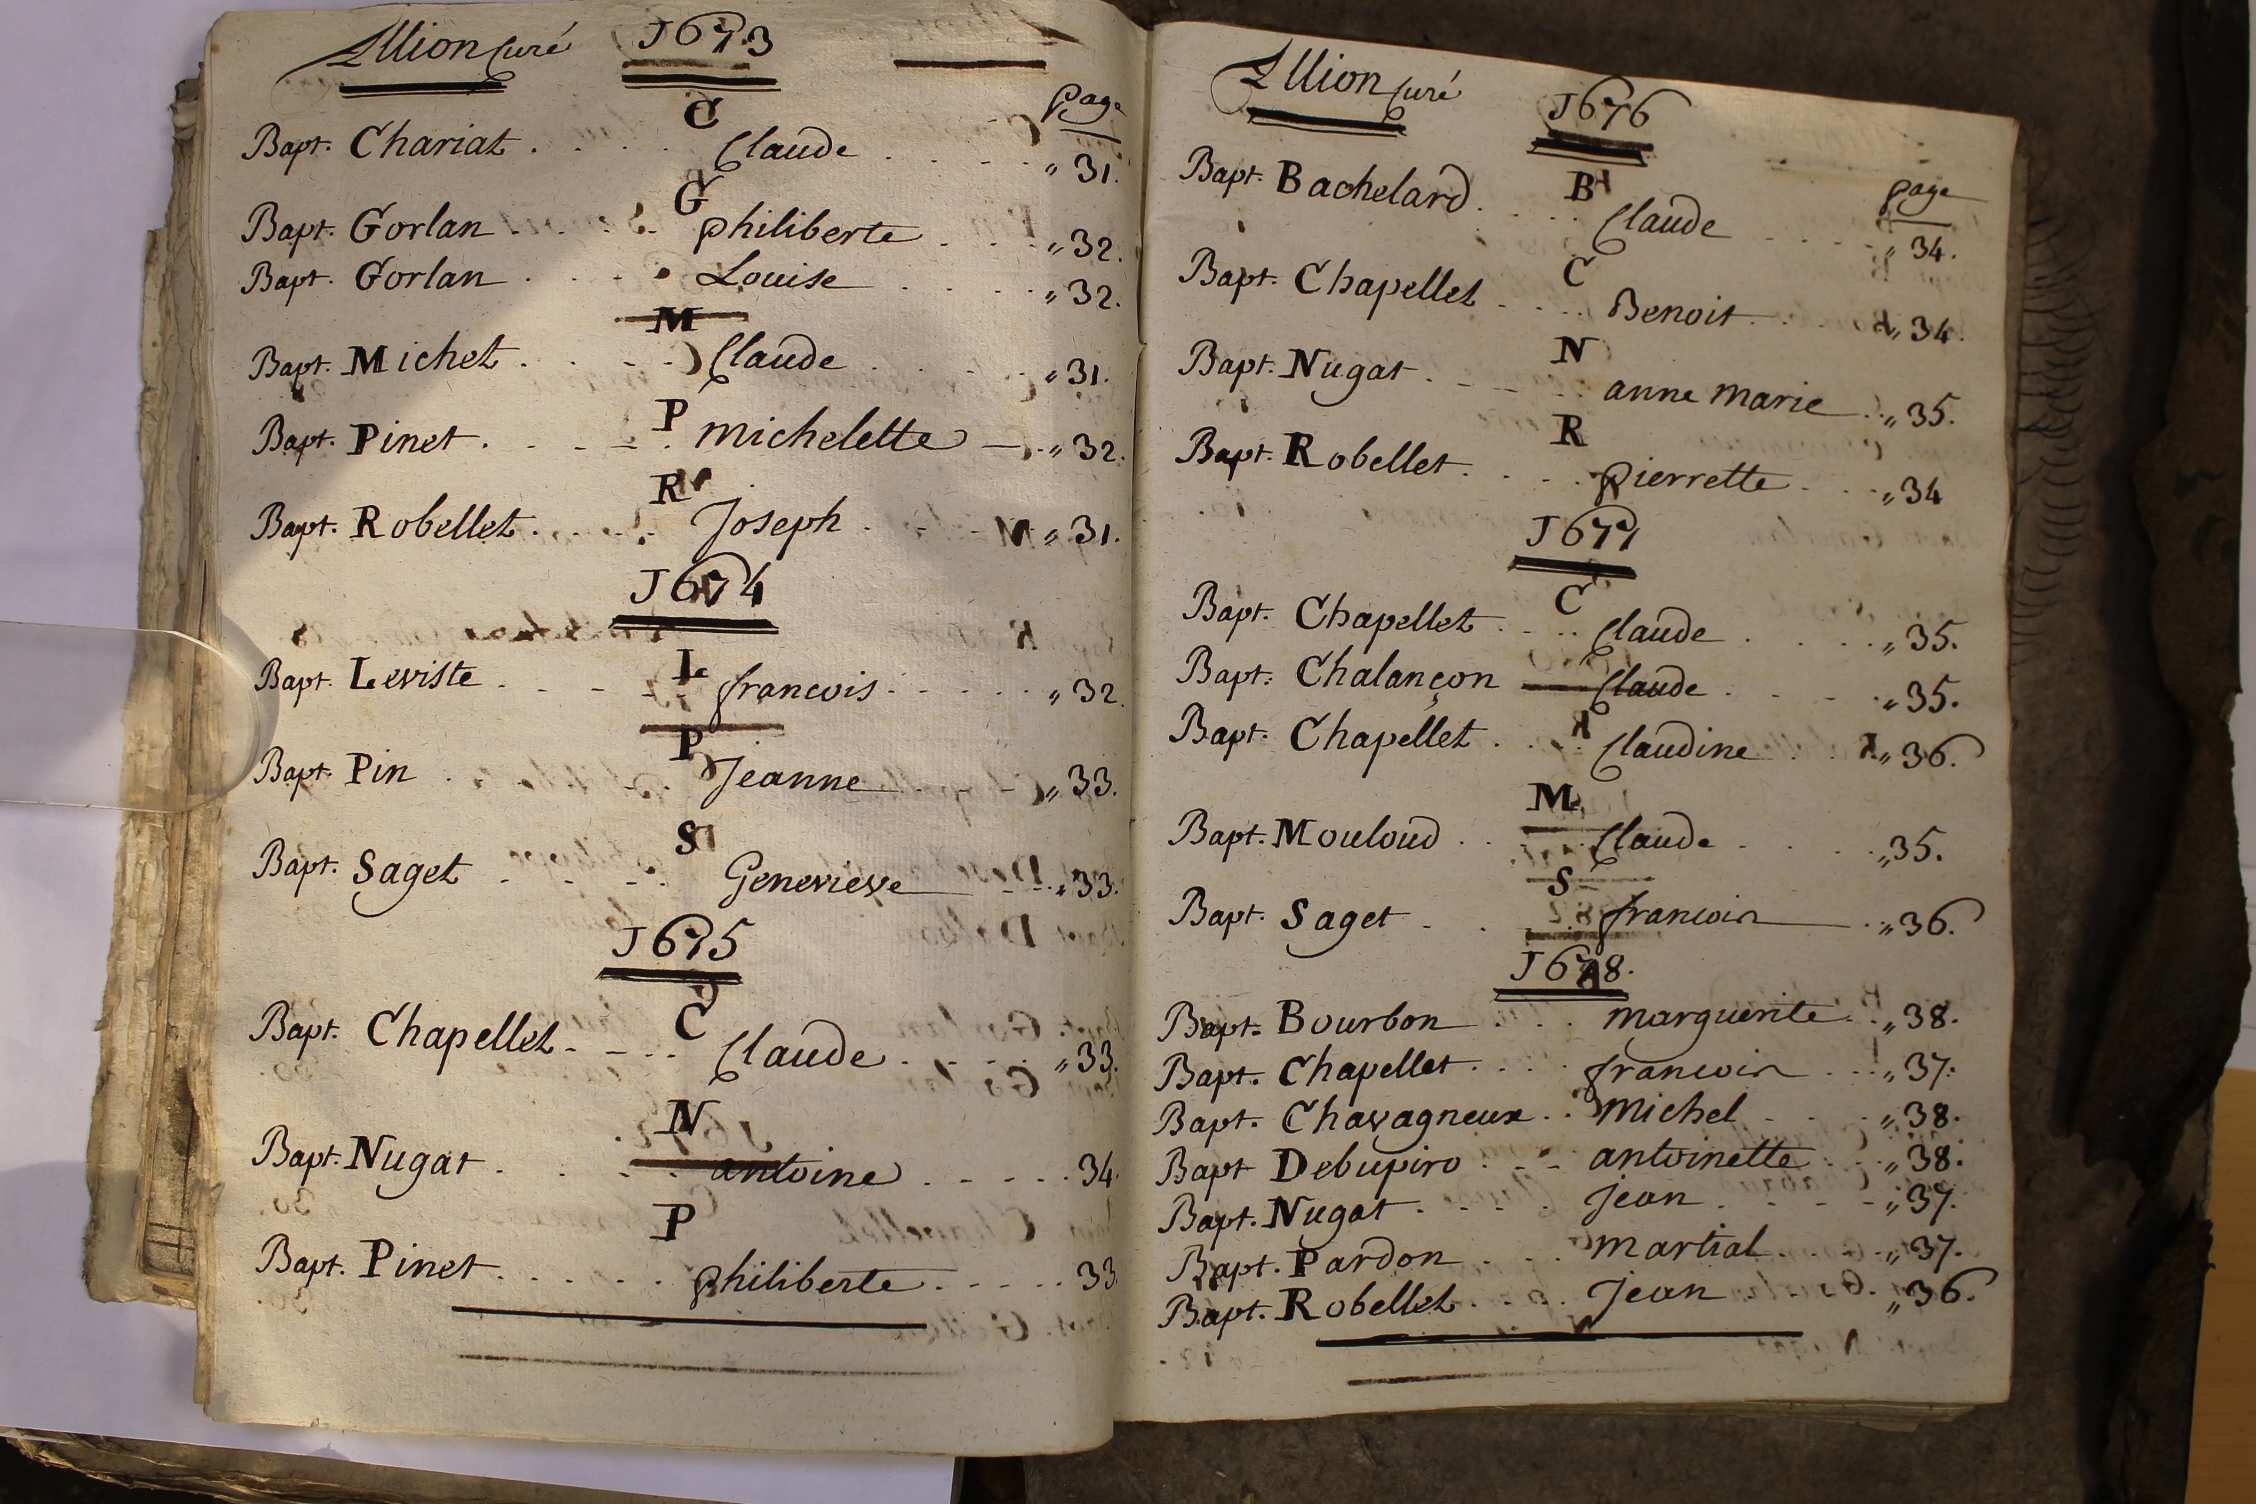 Allion Curé 1673
page
C
Bapt. Chariat . . . . Claude . . . . „ 31.
G
Bapt. Gorlan . . . . philiberte . . . . „ 32.
Bapt. Gorlan . . . . Louise . . . . . „ 32.
M
Bapt. Michet . . . . Claude . . . . . „ 31.
P
Bapt. Pinet . . . . . michelette . . „ 32.
R
Bapt. Robellet . . . . Joseph . . . . „ 31.
1674
L
Bapt. Leviste . . . . francois . . . . . „ 32.
P
Bapt. Pin . . . . Jeanne . . . . „ 33.
S
Bapt. Saget . . . . Genevieve . . . „ 33.
1675
C
Bapt. Chapellet . . . . Claude . . . . . „ 33.
N
Bapt. Nugat . . . . antoine . . . . . 34.
P
Bapt. Pinet . . . . . . philiberte . . . . . 33
Allion Curé
1676
page
B
Bapt. Bachelard . . . . Claude . . . . „ 34.
C
Bapt. Chapellet . . . . Benoit . . . „ 34.
N
Bapt. Nugat . . . . anne marie . . „ 35.
R
Bapt. Robellet . . . . pierrette . . . „ 34
1677
C
Bapt. Chapellet . . . . Claude . . . . . „ 35.
Bapt. Chalançon Claude . . . . . „ 35.
Bapt. Chapellet . . . . Claudine . . „ 36.
M
Bapt. Mouloud . . . . Claude . . . . . „ 35.
S
Bapt. Saget . . . . francois . „ 36.
1678.
Bapt. Bourbon . . . marguerite . . „ 38.
Bapt. Chapellet . . . . francois . . . „ 37.
Bapt. Chavagneux . . michel . . . . „ 38.
Bapt Debupiro . . . antoinette . . . „ 38.
Bapt. Nugat . . . . . jean . . . . . „ 37.
Bapt. Pardon . . . martial . . . „ 37.
Bapt. Robellet . . . . Jean „ 36.